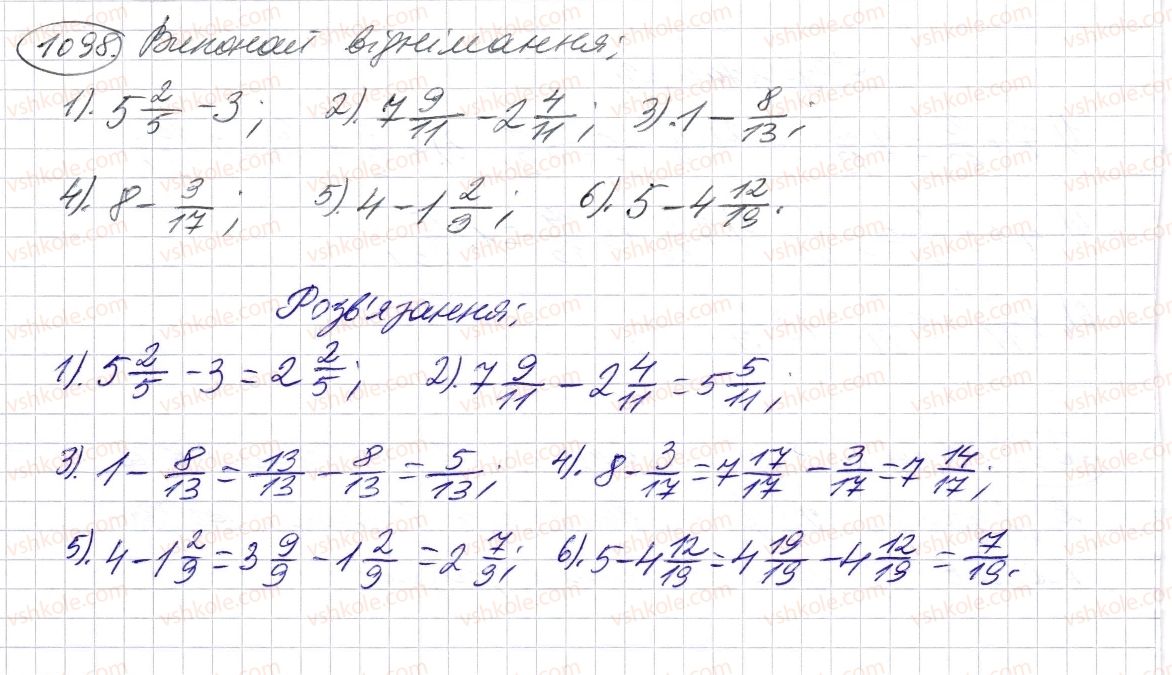 1098. Виконай віднімання:
1). 5 2/5 - 3; 2). 7 9/11 - 2 4/11; 3). 1 - 8/13;
4). 8 - 3/17; 5). 4 - 1 2/9; 6). 5 - 4 12/19.
Розв'язання:
1). 5 2/5 - 3 = 2 2/5; 2). 7 9/11 - 2 4/11 = 5 5/11;
3). 1 - 8/13 = 13/13 - 8/13 = 5/13; 4). 8 - 3/17 = 7 17/17 - 3/17 = 7 14/17;
5). 4 - 1 2/9 = 3 9/9 - 1 2/9 = 2 7/9; 6). 5 - 4 12/19 = 4 19/19 - 4 12/19 = 7/19.
vshkole.com